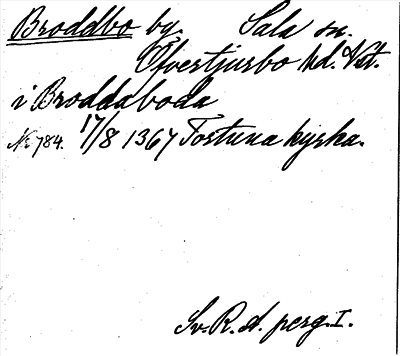 Broddbo by. Sala sn.
Öfvertjurbo hd. Vst.
i Broddaboda
No 784. 17/8 1367 Tortuna kyrka.
Sv. R. A. perg. I.